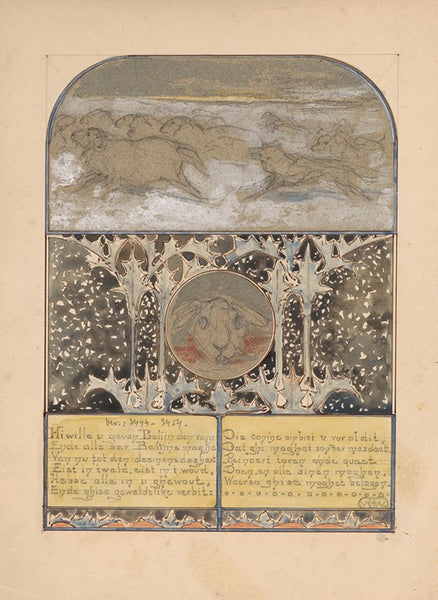 Vers: 3444-3454.
Hi wille u geven Belijn den ram
Ende alle ser Belijns maghe
Van nu tot den doemsdaghe:
Eist in tveld, eist in t woud,
Hebse alle in u ghewout,
Ende ghise geweldelike verbits
Die coninc onbiet u vor al dit,
Dat ghi moghet sonder mesdaet
Reinaert toren ende quaet
Doen, en alle sinen maghen,
Waerso ghi se moghet belagen.